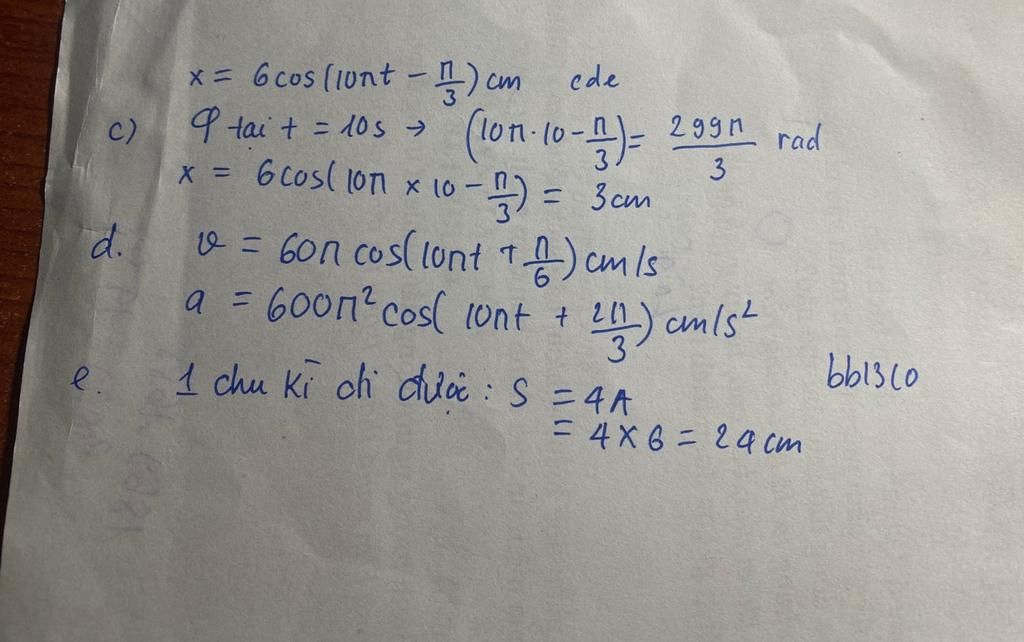 x = 6cos(10πt - π/3) cm cde
c) φ tại t = 10s → (10π.10 - π/3) = 299π/3 rad
x = 6cos(10π × 10 - π/3) = 3cm
d. v = 60π cos(10πt + π/6) cm/s
a = 600π² cos(10πt + 2π/3) cm/s²
e. 1 chu kì đi được : S = 4A
= 4 × 6 = 24 cm
bb13co